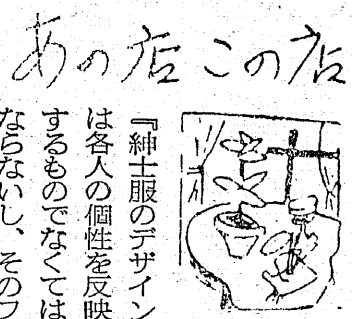 あの店この店
『紳士服のデザイン
は各人の個性を反映
するものでなくては
ならないし、そのフ